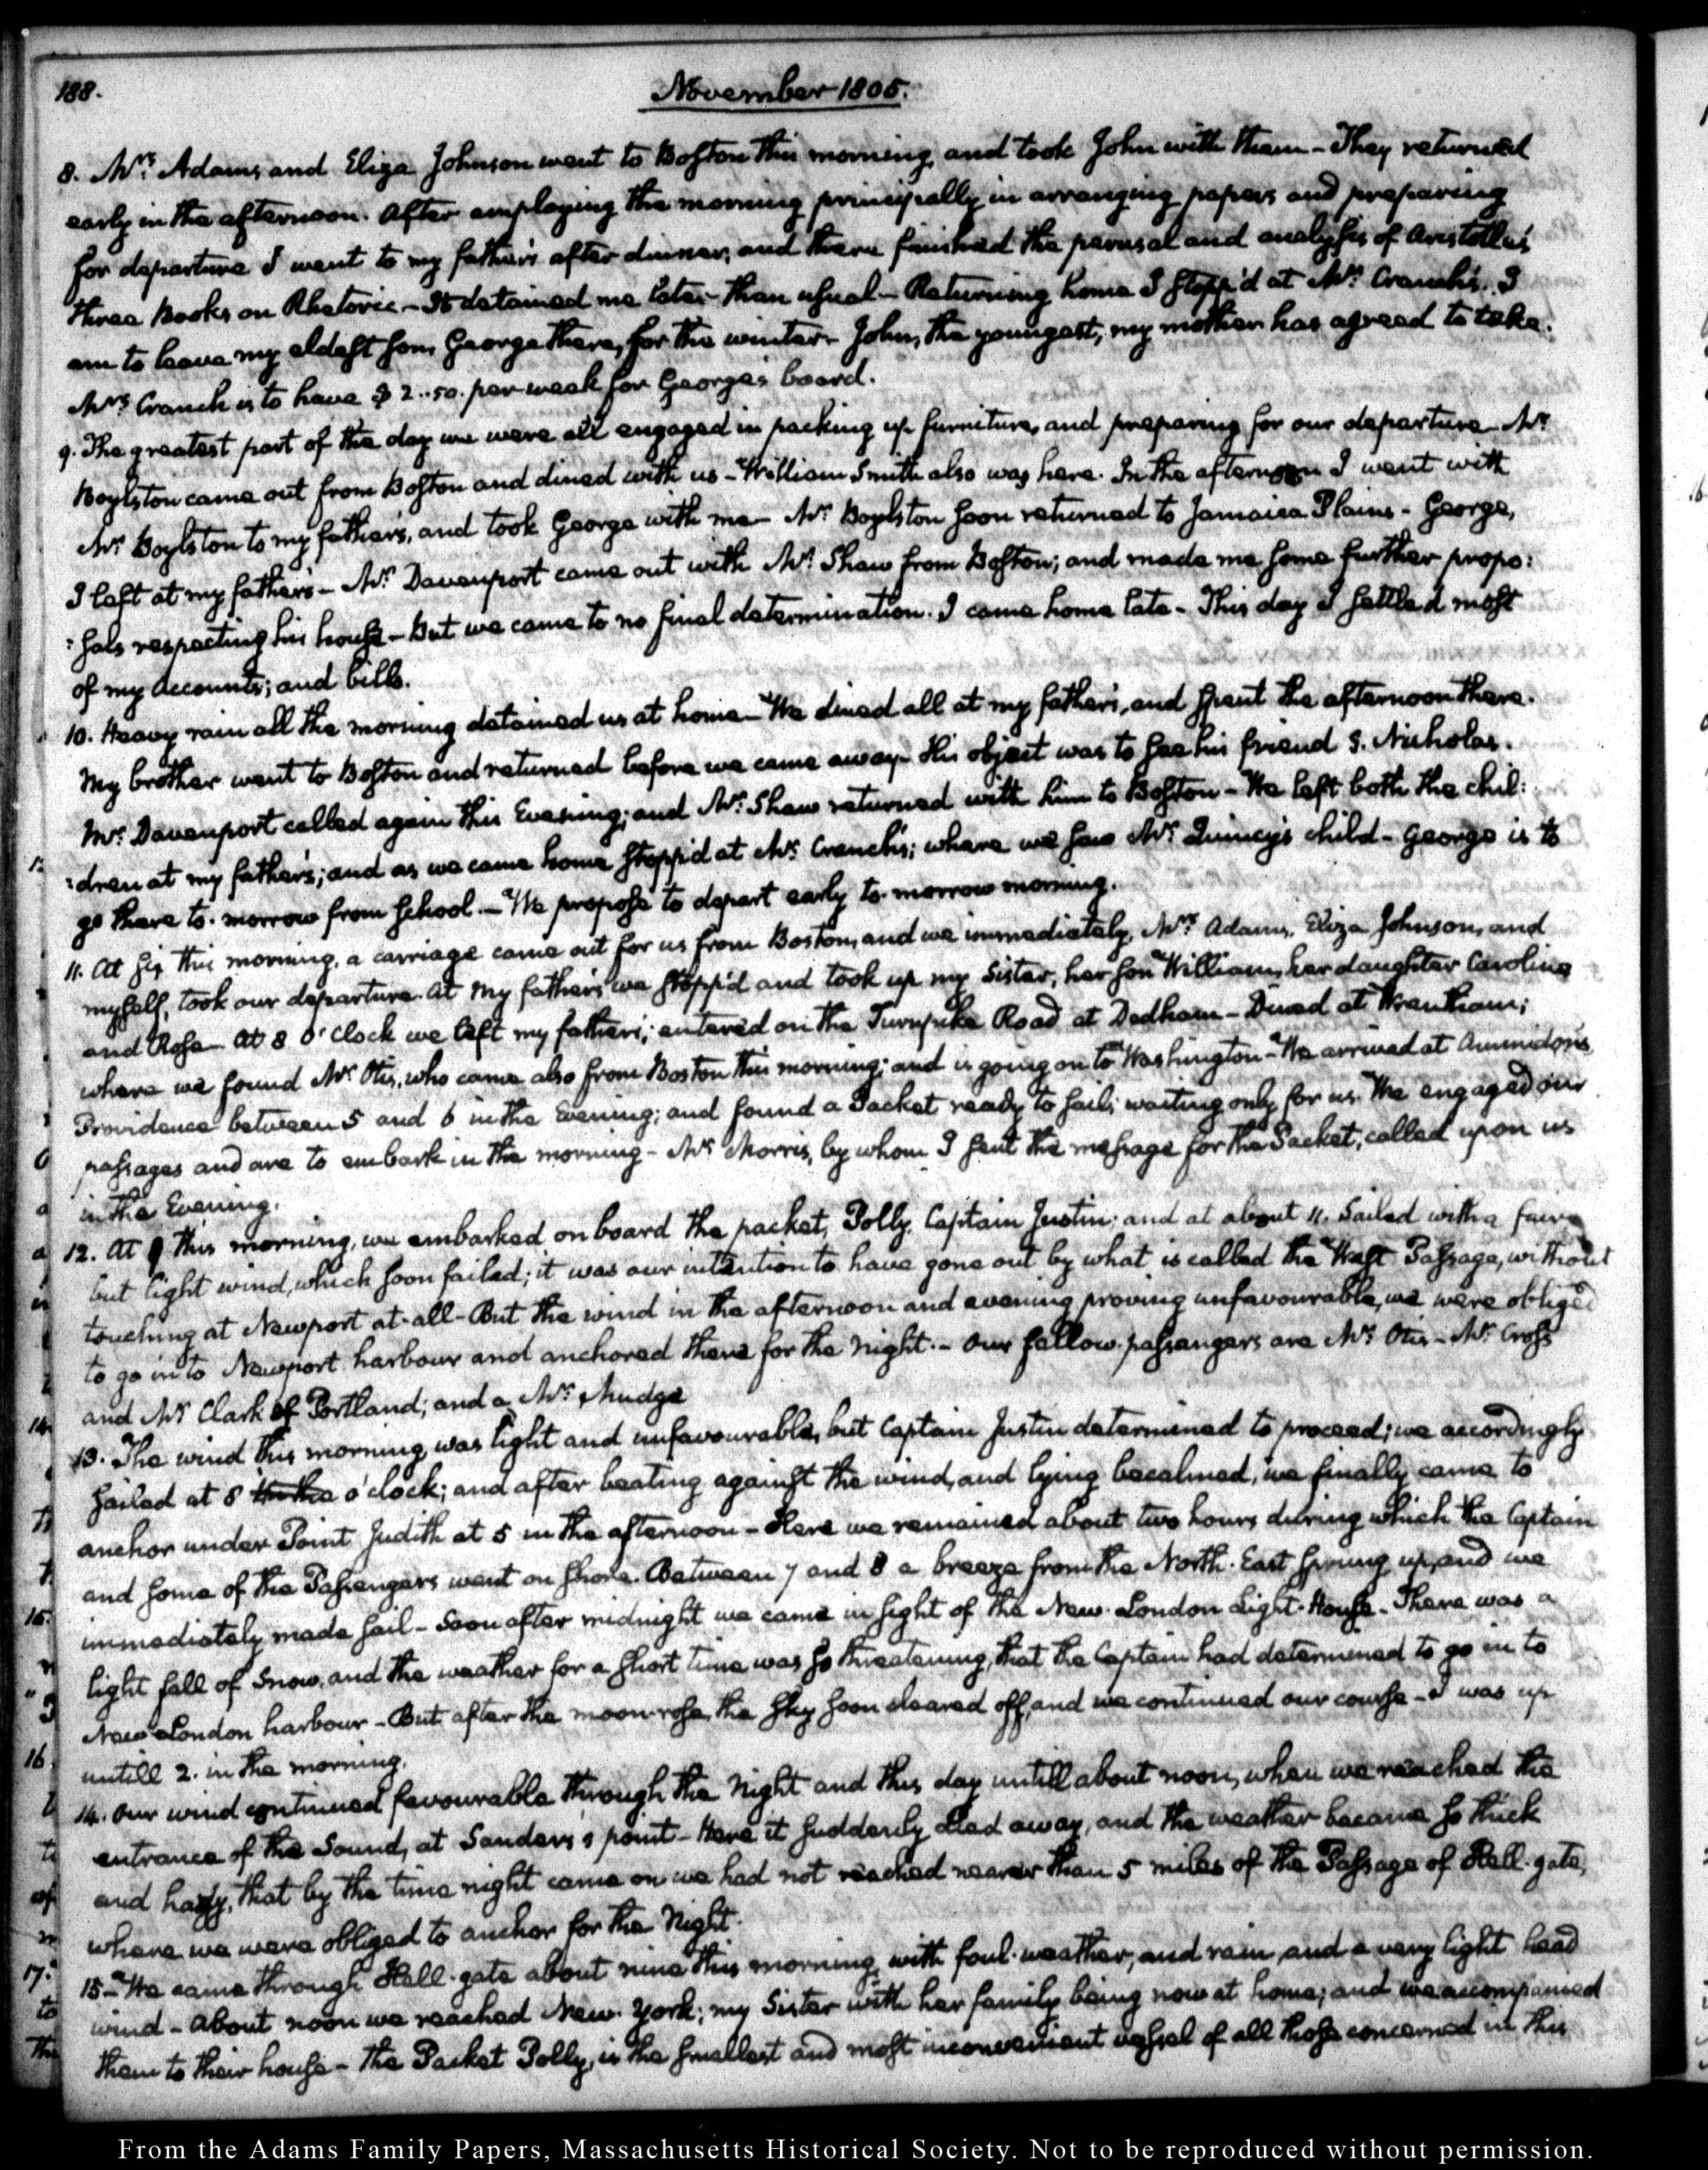 188.
November 1805.
8. Mrs. Adams and Eliza Johnson went to Boston this morning, and took John with them - They returned
early in the afternoon. After employing the morning principally in arranging papers and preparing
for departure I went to my father's after dinner, and there finished the perusal and analysis of Aristotle's
three Books on Rhetoric - It detained me later than usual - Returning home I stopp'd at Mr. Cranch's. I
am to leave my eldest son, George there, for the winter - John, the youngest, my mother has agreed to take.
Mrs. Cranch is to have $ 2..50. per week for George's board.
9. The greatest part of the day we were all engaged in packing up furniture, and preparing for our departure - Mr.
Boylston came out from Boston and dined with us - William Smith also was here. In the afternoon I went with
Mr. Boylston to my father's, and took George with me - Mr. Boylston soon returned to Jamaica Plains - George,
I left at my father's - Mr. Davenport came out with Mr. Shaw from Boston; and made me some further propo:
:sals respecting his house - But we came to no final determination. I came home late - This day I settled most
of my accounts; and bills.
10. Heavy rain all the morning detained us at home - We dined all at my father's, and spent the afternoon there.
My brother went to Boston and returned before we came away - His object was to see his friend S. Nicholas.
Mr. Davenport called again this Evening; and Mr. Shaw returned with him to Boston - We left both the chil:
:dren at my father's; and as we came home stopp'd at Mr. Cranch's; where we saw Mr. Quincy's child - George is to
go there to-morrow from school. - We propose to depart early to-morrow morning.
11. At six this morning, a carriage came out for us from Boston, and we immediately, Mrs. Adams, Eliza Johnson, and
myself, took our departure. At my father's we stopp'd and took up my Sister, her son William, her daughter Caroline
and Rosa - At 8 o'clock we left my father's; entered on the Turnpike Road at Dedham - Dined at Wrentham;
where we found Mr. Otis, who came also from Boston this morning; and is going on to Washington - We arrived at Ammidon's
Providence between 5 and 6 in the Evening; and found a Packet ready to sail; waiting only for us. We engaged our
passages and are to embark in the morning - Mr. Morris, by whom I sent the message for the Packet, called upon us
in the Evening.
12. At 9 this morning, we embarked on board the packet, Polly, Captain Justin; and at about 11. Sailed with a fair
but light wind, which soon failed; it was our intention to have gone out by what is called the West Passage, without
touching at Newport at-all - But the wind in the afternoon and evening proving unfavourable, we were obliged
to go in to Newport harbour and anchored there for the night. - Our fellow-passengers are Mr. Otis - Mr. Cross
and Mr. Clark of Portland; and a Mr. Mudge
13. The wind this morning was light and unfavourable, but Captain Justin determined to proceed; we accordingly
sailed at 8 o'clock; and after beating against the wind, and lying becalmed, we finally came to
anchor under Point Judith at 5 in the afternoon - Here we remained about two hours during which the Captain
and some of the Passengers went on shore. Between 7 and 8 a breeze from the North-East sprung up, and we
immediately made sail - Soon after midnight we came in sight of the New-London Light-House - There was a
light fall of Snow, and the weather for a short time was so threatening, that the Captain had determined to go in to
New London harbour - But after the moon-rose, the sky soon cleared off, and we continued our course - I was up
untill 2. in the morning.
14. Our wind continued favourable through the Night and this day untill about noon, when we reached the
entrance of the Sound, at Sanders's point - Here it suddenly died away, and the weather became so thick
and hazy, that by the time night came on we had not reached nearer than 5 miles of the Passage of Hell-gate,
where we were obliged to anchor for the Night.
15. We came through Hell-gate about nine this morning, with foul weather, and rain, and a very light head
wind - About noon we reached New-York; my Sister with her family being now at home; and we accompanied
them to their house - The Packet Polly, is the smallest and most inconvenient vessel of all those concerned in this
From the Adams Family Papers, Massachusetts Historical Society. Not to be reproduced without permission.